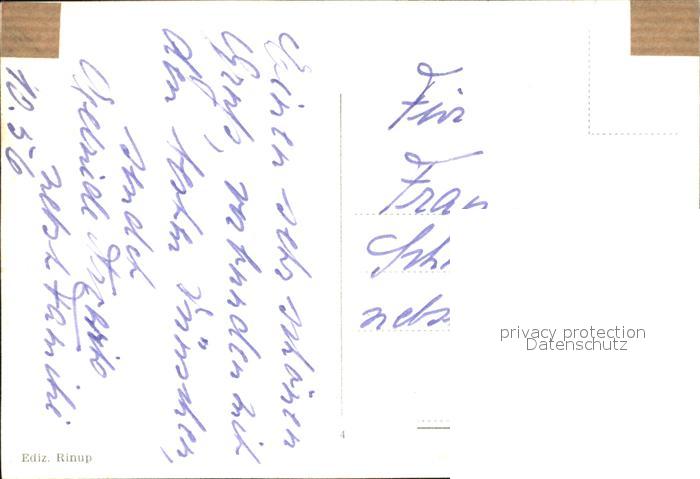 Einen sehr schönen
Gruß, verbunden mit
den besten Wünschen,
sendet
nebst Familie
10.56
Für
Frau
Sch
nebs
privacy protection
Datenschutz
4
Ediz. Rinup